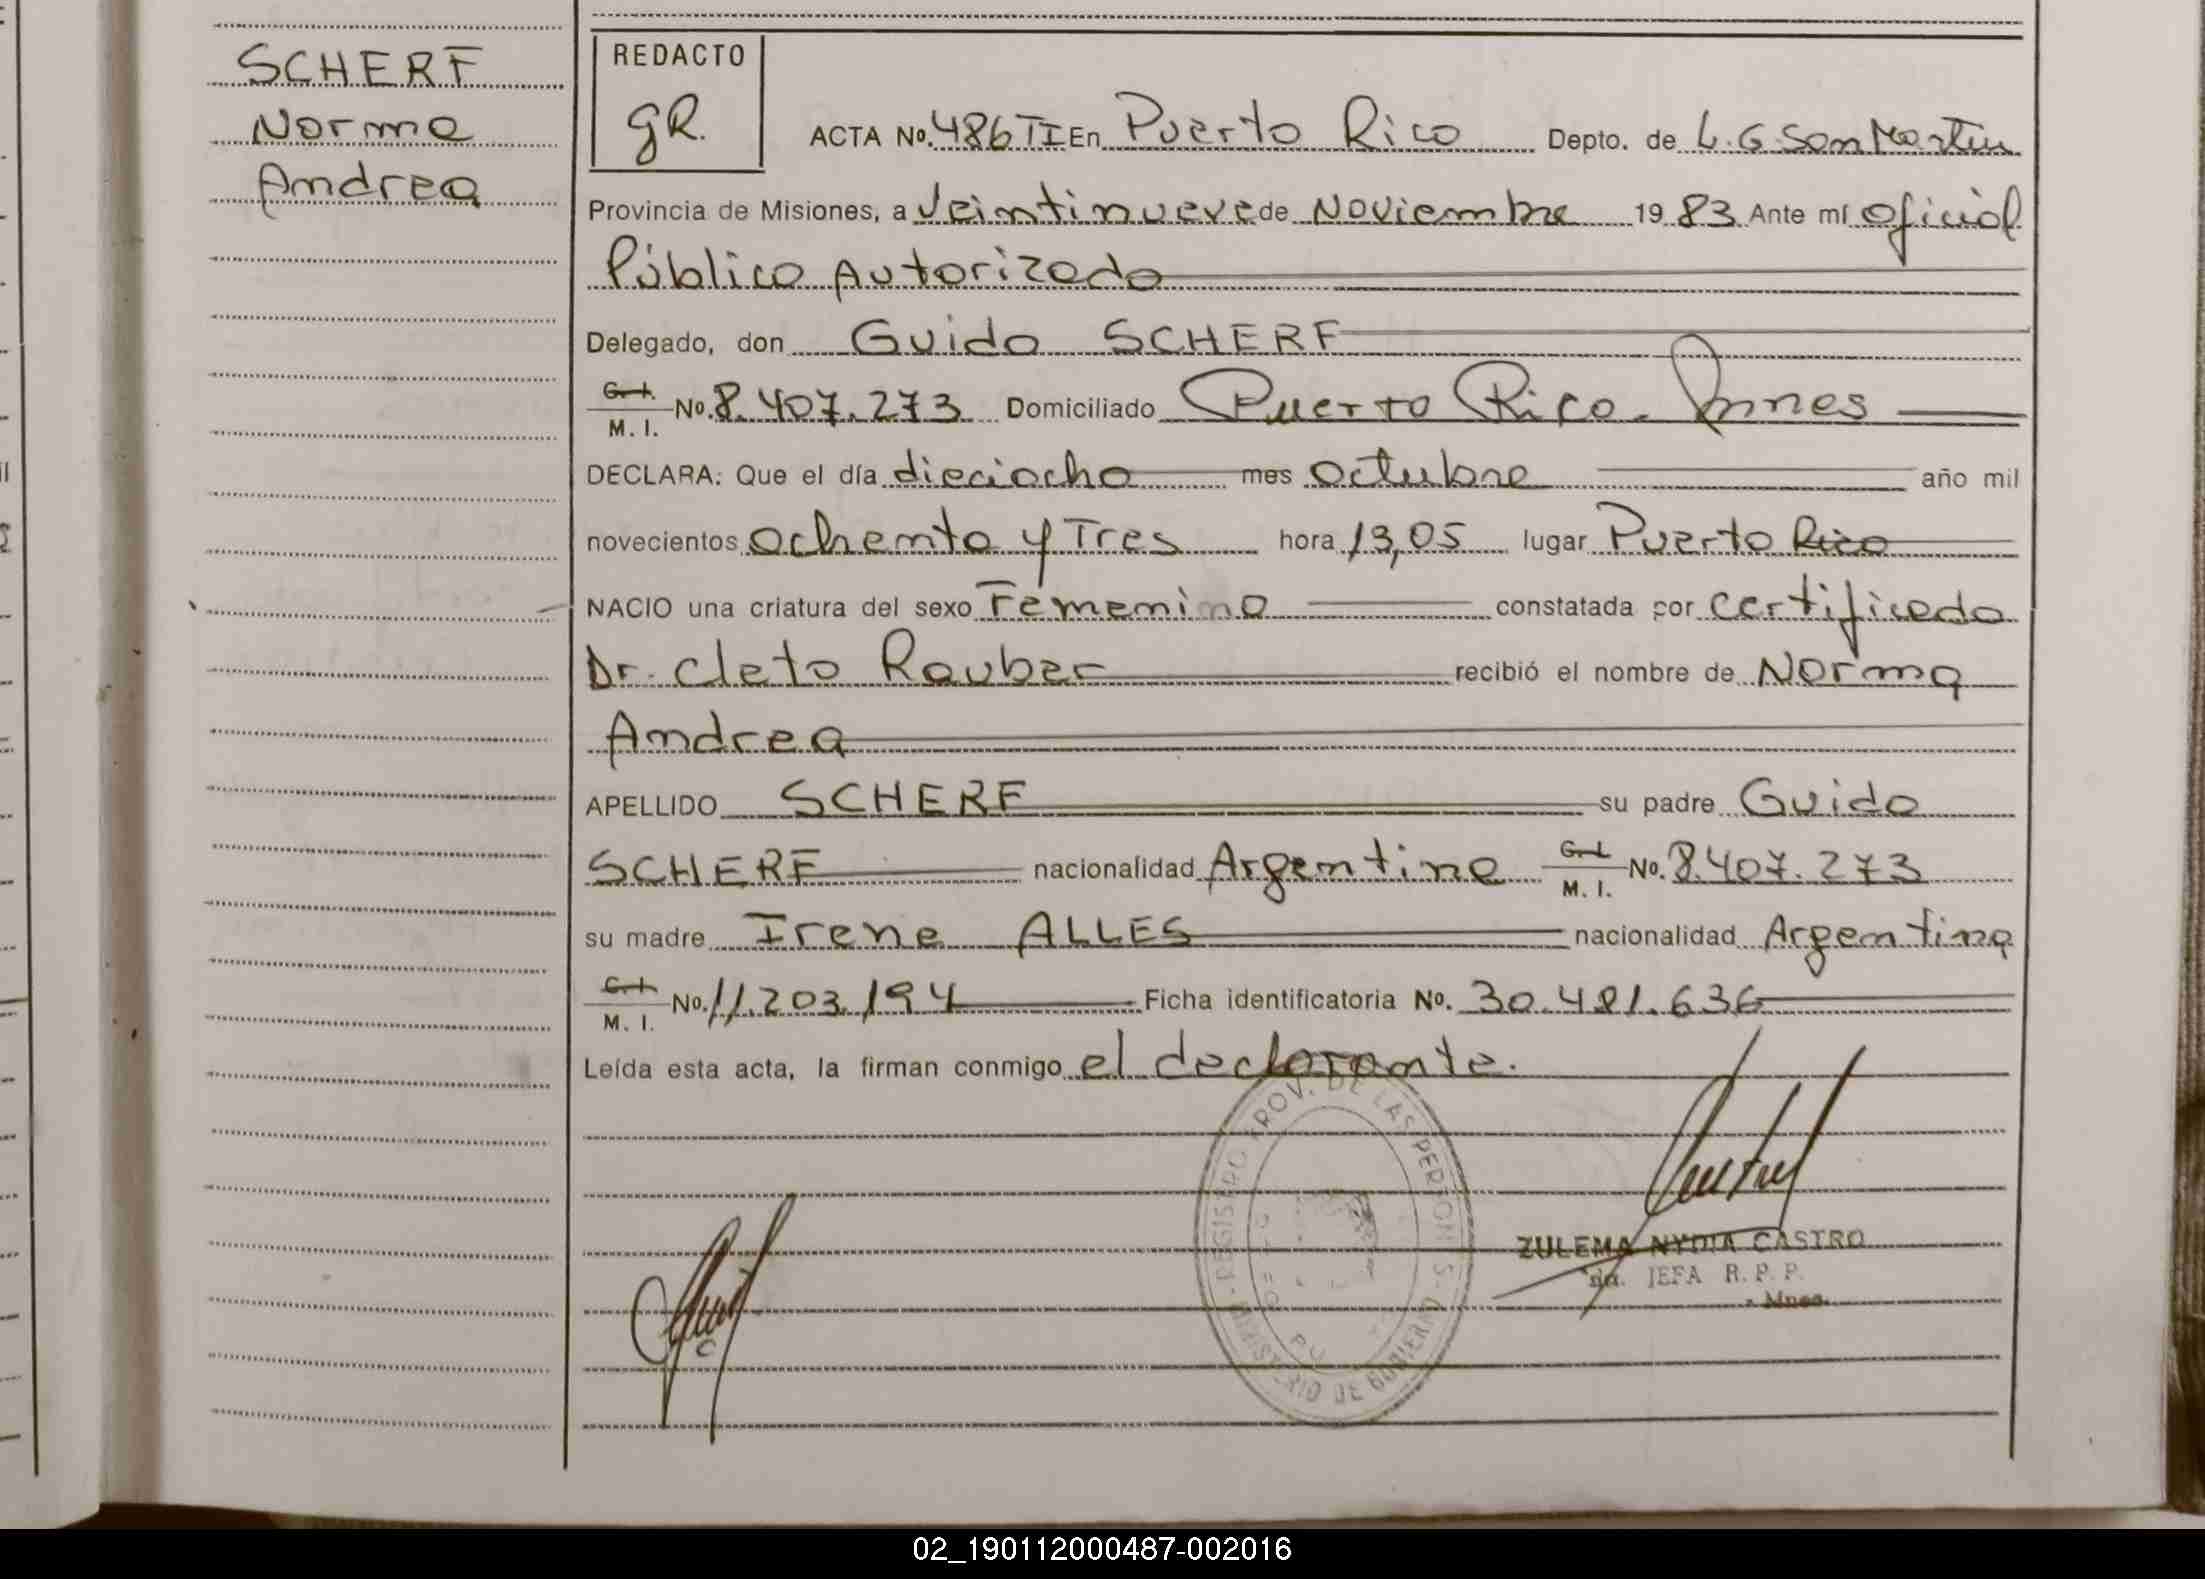 SCHERF
Norma
Andrea
REDACTO
gR.
ACTA No. 486 TI En Puerto Rico Depto. de L. G. San Martín
Provincia de Misiones, a veintinueve de Noviembre 1983 Ante mí oficial
Público Autorizado
Delegado, don Guido SCHERF
C. I. M. I. No. 8.407.273 Domiciliado Puerto Rico - Mnes
DECLARA: Que el día dieciocho mes octubre año mil
novecientos ochenta y Tres hora 13,05 lugar Puerto Rico
NACIO una criatura del sexo Femenino constatada por certificado
Dr. Cleto Rauber recibió el nombre de Norma
Andrea
APELLIDO SCHERF su padre Guido
SCHERF nacionalidad Argentino C. I. M. I. No. 8.407.273
su madre Irene ALLES nacionalidad Argentina
C. I. M. I. No. 11.203.194 Ficha identificatoria No. 30.481.636
Leída esta acta, la firman conmigo el declarante.
REGISTRO PROV. DE LAS PERSONAS
MINISTERIO DE GOBIERNO
ZULEMA NYDIA CASTRO
JEFA R. P. P.
Mnes.
02_190112000487-002016